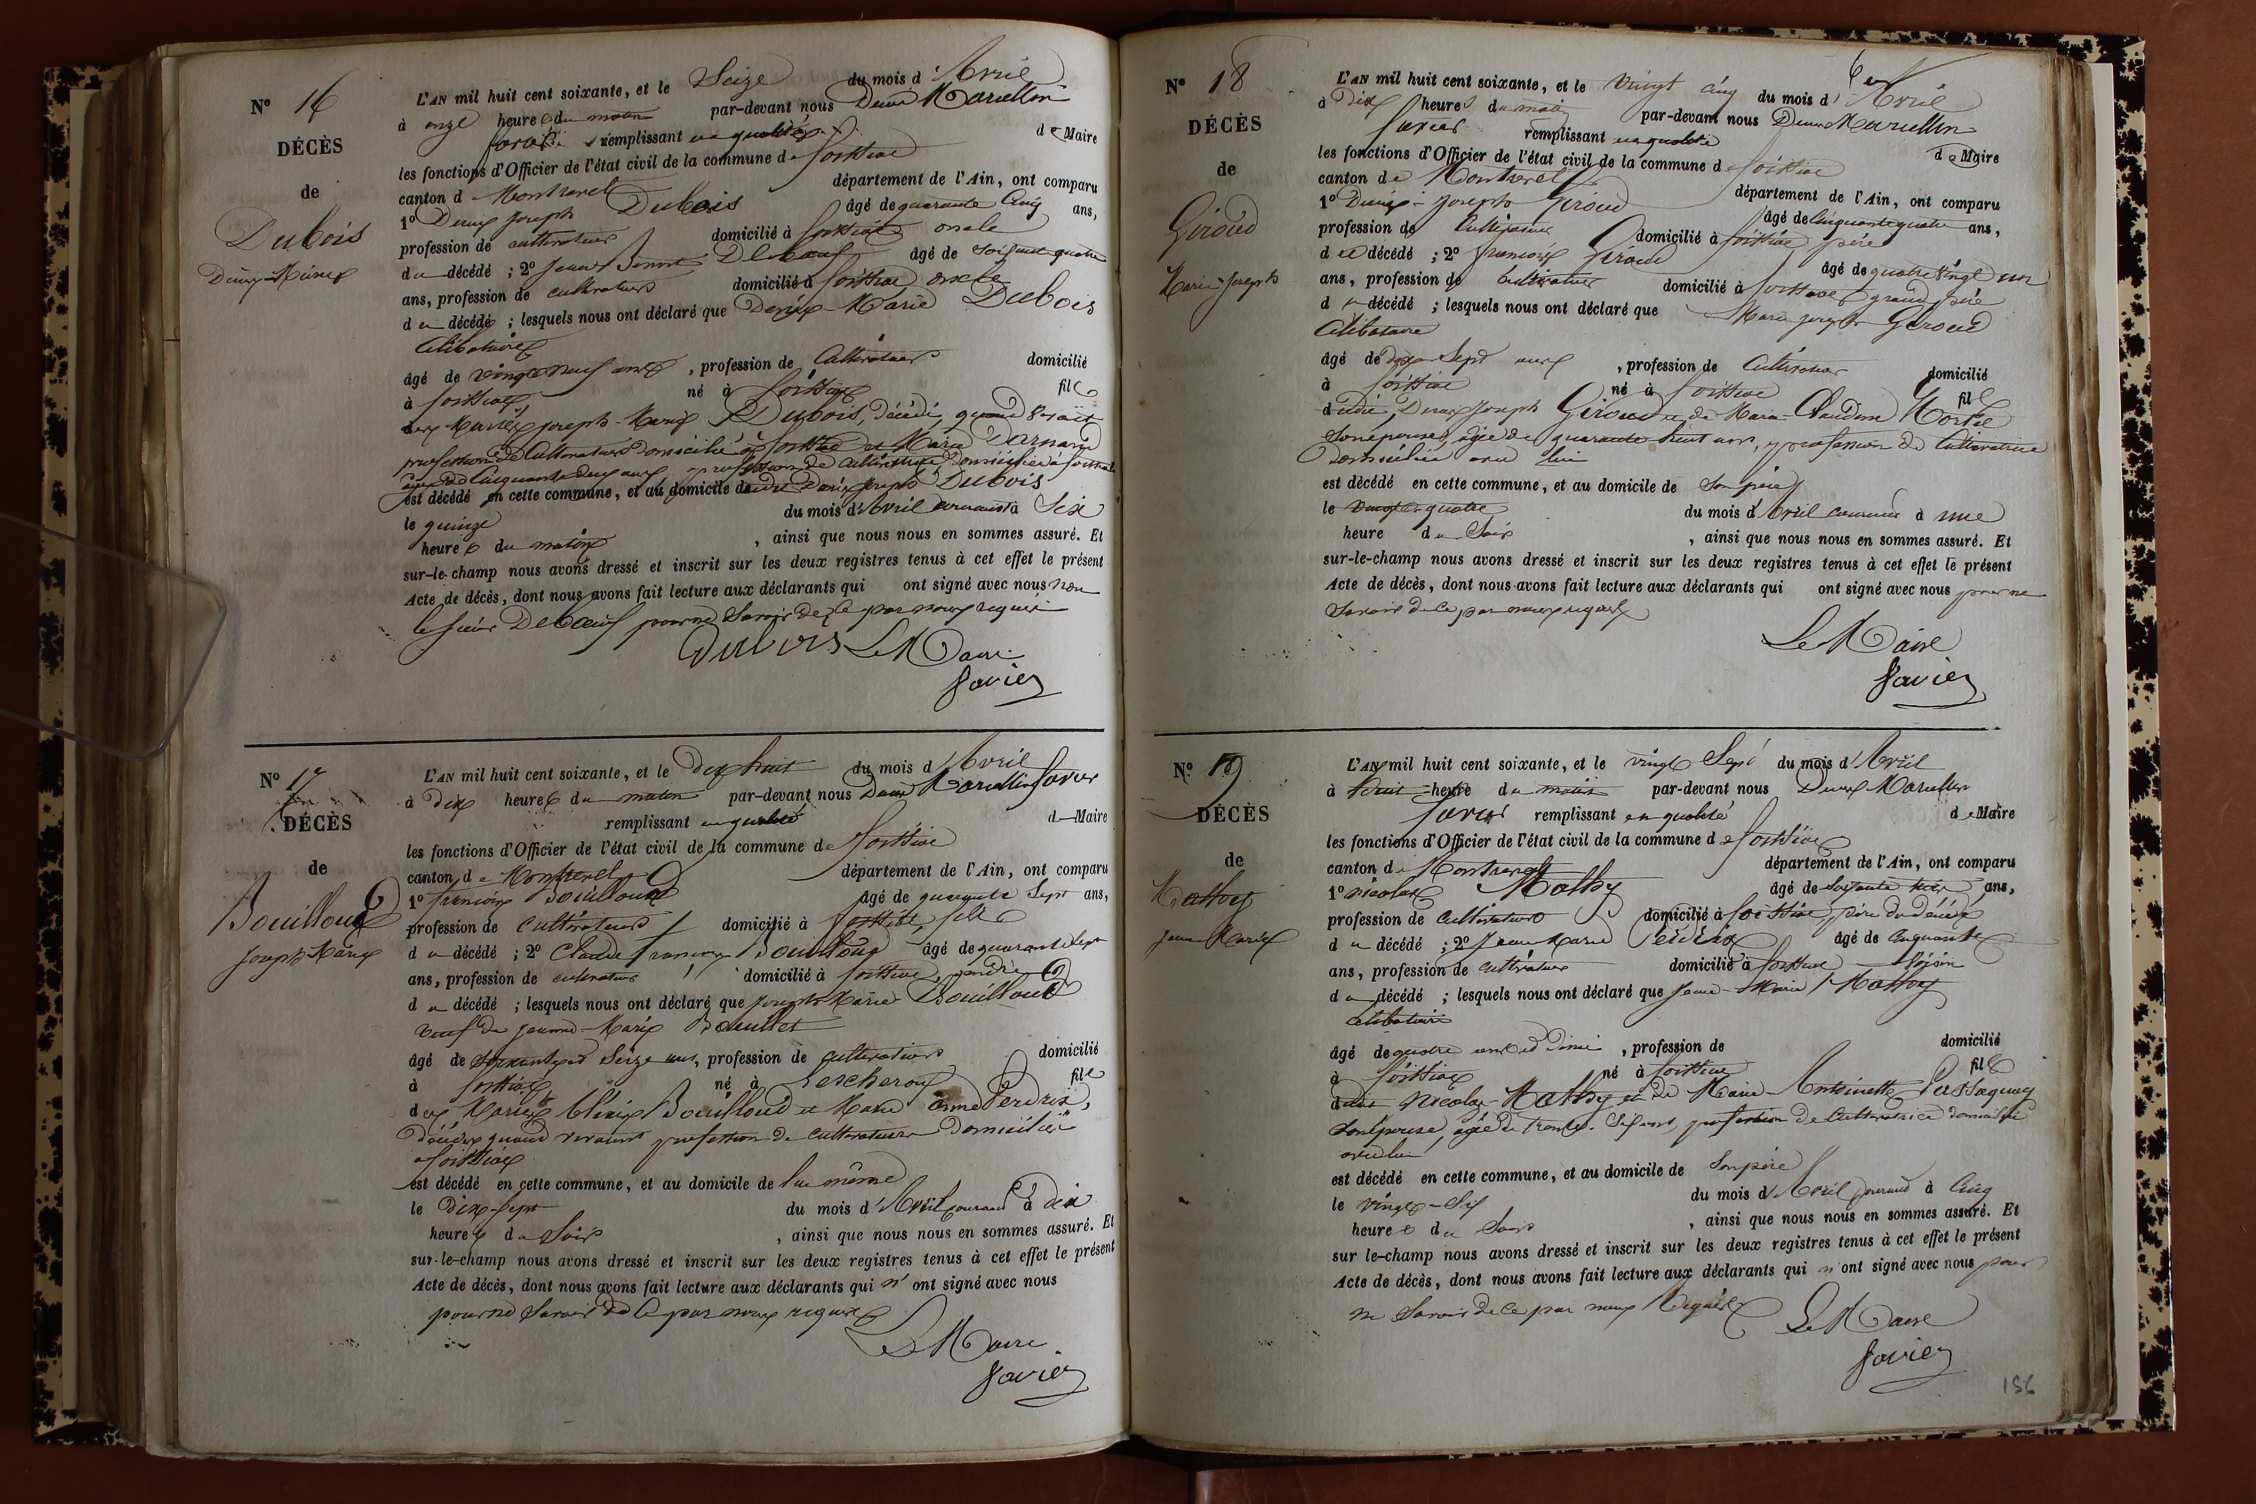 N° 16
DÉCÈS
de
Dubois
Denis Marie
L'AN mil huit cent soixante, et le Seize du mois d'Avril
à onze heures du matin par-devant nous Denis Marcellin
favier remplissant en qualité de Maire
les fonctions d'Officier de l'état civil de la commune de foissiat
canton de Montrevel département de l'Ain, ont comparu
1° Denis Joseph Dubois âgé de quarante Cinq ans,
profession de cultivateur domicilié à foissiat oncle
du décédé ; 2° Jean Benoit Deboeuf âgé de soixante quatre
ans, profession de cultivateur domicilié à foissiat oncle
du décédé ; lesquels nous ont déclaré que Denis-Marie Dubois
célibataire
âgé de vingt neuf ans, profession de Cultivateur domicilié
à foissiat né à foissiat fils
des Mariés Joseph-Marie Dubois, décédé, quand vivait
profession de Cultivateur domicilié à foissiat et Marie
âgée de Cinquante deux ans, profession de cultivatrice, domiciliée à foissiat
est décédé en cette commune, et au domicile dudit Denis Joseph Dubois
le quinze du mois d'Avril courant à Six
heures du matin, ainsi que nous nous en sommes assuré. Et
sur-le-champ nous avons dressé et inscrit sur les deux registres tenus à cet effet le présent
Acte de décès, dont nous avons fait lecture aux déclarants qui ont signé avec nous non
le sieur Deboeuf pour ne Savoir de ce par nous requis
Dubois Le Maire
favier
N° 17
DÉCÈS
de
Bouilloud
Joseph Marie
L'AN mil huit cent soixante, et le dix huit du mois d'Avril
à dix heures du matin par-devant nous Denis Marcellin favier
remplissant en qualité d Maire
les fonctions d'Officier de l'état civil de la commune de foissiat
canton de Montrevel département de l'Ain, ont comparu
1° françois Bouilloud âgé de quarante Sept ans,
profession de Cultivateur domicilié à foissiat, fils
du décédé ; 2° Claude françois Bouilloud âgé de quarante sept
ans, profession de cultivateur domicilié à foissiat, gendre
du décédé ; lesquels nous ont déclaré que Joseph Marie Bouilloud
veuf de Jeanne-Marie Bouillet
âgé de soixante et Seize ans, profession de cultivateur domicilié
à foissiat né à Lescheroux fils
des Mariés Bouilloud et Marie Perdrix,
décédés quand vivaient profession de cultivateurs domiciliés
à foissiat
est décédé en cette commune, et au domicile de lui même
le Dix-Sept du mois d'Avril courant à dix
heures du Soir, ainsi que nous nous en sommes assuré. Et
sur-le-champ nous avons dressé et inscrit sur les deux registres tenus à cet effet le présent
Acte de décès, dont nous avons fait lecture aux déclarants qui n'ont signé avec nous
pour ne Savoir de ce par nous requis
Le Maire
favier
N° 18
DÉCÈS
de
Giroud
Marie-Joseph
L'AN mil huit cent soixante, et le vingt cinq du mois d'Avril
à Dix heures du matin par-devant nous Denis Marcellin
favier remplissant en qualité de Maire
les fonctions d'Officier de l'état civil de la commune de foissiat
canton de Montrevel département de l'Ain, ont comparu
1° Denis-Joseph Giroud âgé de Cinquante quatre ans,
profession de Cultivateur domicilié à foissiat, père
du décédé ; 2° françois Giroud âgé de quatre vingt un
ans, profession de Cultivateur domicilié à foissiat grand père
du décédé ; lesquels nous ont déclaré que Marie Joseph Giroud
célibataire
âgé de dix Sept ans, profession de Cultivateur domicilié
à foissiat né à foissiat fils
dudit Denis Joseph Giroud et de Marie-Claudine
Son épouse, âgée de quarante huit ans, profession de Cultivatrice
domiciliée avec lui
est décédé en cette commune, et au domicile de Son père
le vingt-quatre du mois d'Avril courant à une
heure du Soir, ainsi que nous nous en sommes assuré. Et
sur-le-champ nous avons dressé et inscrit sur les deux registres tenus à cet effet le présent
Acte de décès, dont nous avons fait lecture aux déclarants qui ont signé avec nous pour ne
Savoir de ce par nous requis
Le Maire
favier
N° 19
DÉCÈS
de
Mathy
Jean Marie
L'AN mil huit cent soixante, et le vingt Sept du mois d'Avril
à huit heure du matin par-devant nous Denis Marcellin
favier remplissant en qualité de Maire
les fonctions d'Officier de l'état civil de la commune de foissiat
canton de Montrevel département de l'Ain, ont comparu
1° Nicolas Mathy âgé de Soixante ans,
profession de Cultivateur domicilié à foissiat, père du décédé
du décédé ; 2° Jean Marie Perdrix âgé de Cinquante
ans, profession de cultivateur domicilié à foissiat Voisin
du décédé ; lesquels nous ont déclaré que Jean-Marie Mathy
célibataire
âgé de quatre ans et demi, profession de domicilié
à foissiat né à foissiat fils
dudit Nicolas Mathy et de Marie-Antoinette
Son épouse, âgée de trente-Six ans, profession de Cultivatrice domiciliée
avec lui
est décédé en cette commune, et au domicile de Son père
le vingt-Six du mois d'Avril courant à Cinq
heures du Soir, ainsi que nous nous en sommes assuré. Et
sur le-champ nous avons dressé et inscrit sur les deux registres tenus à cet effet le présent
Acte de décès, dont nous avons fait lecture aux déclarants qui n'ont signé avec nous pour
ne Savoir de ce par nous Requis
Le Maire
favier
156